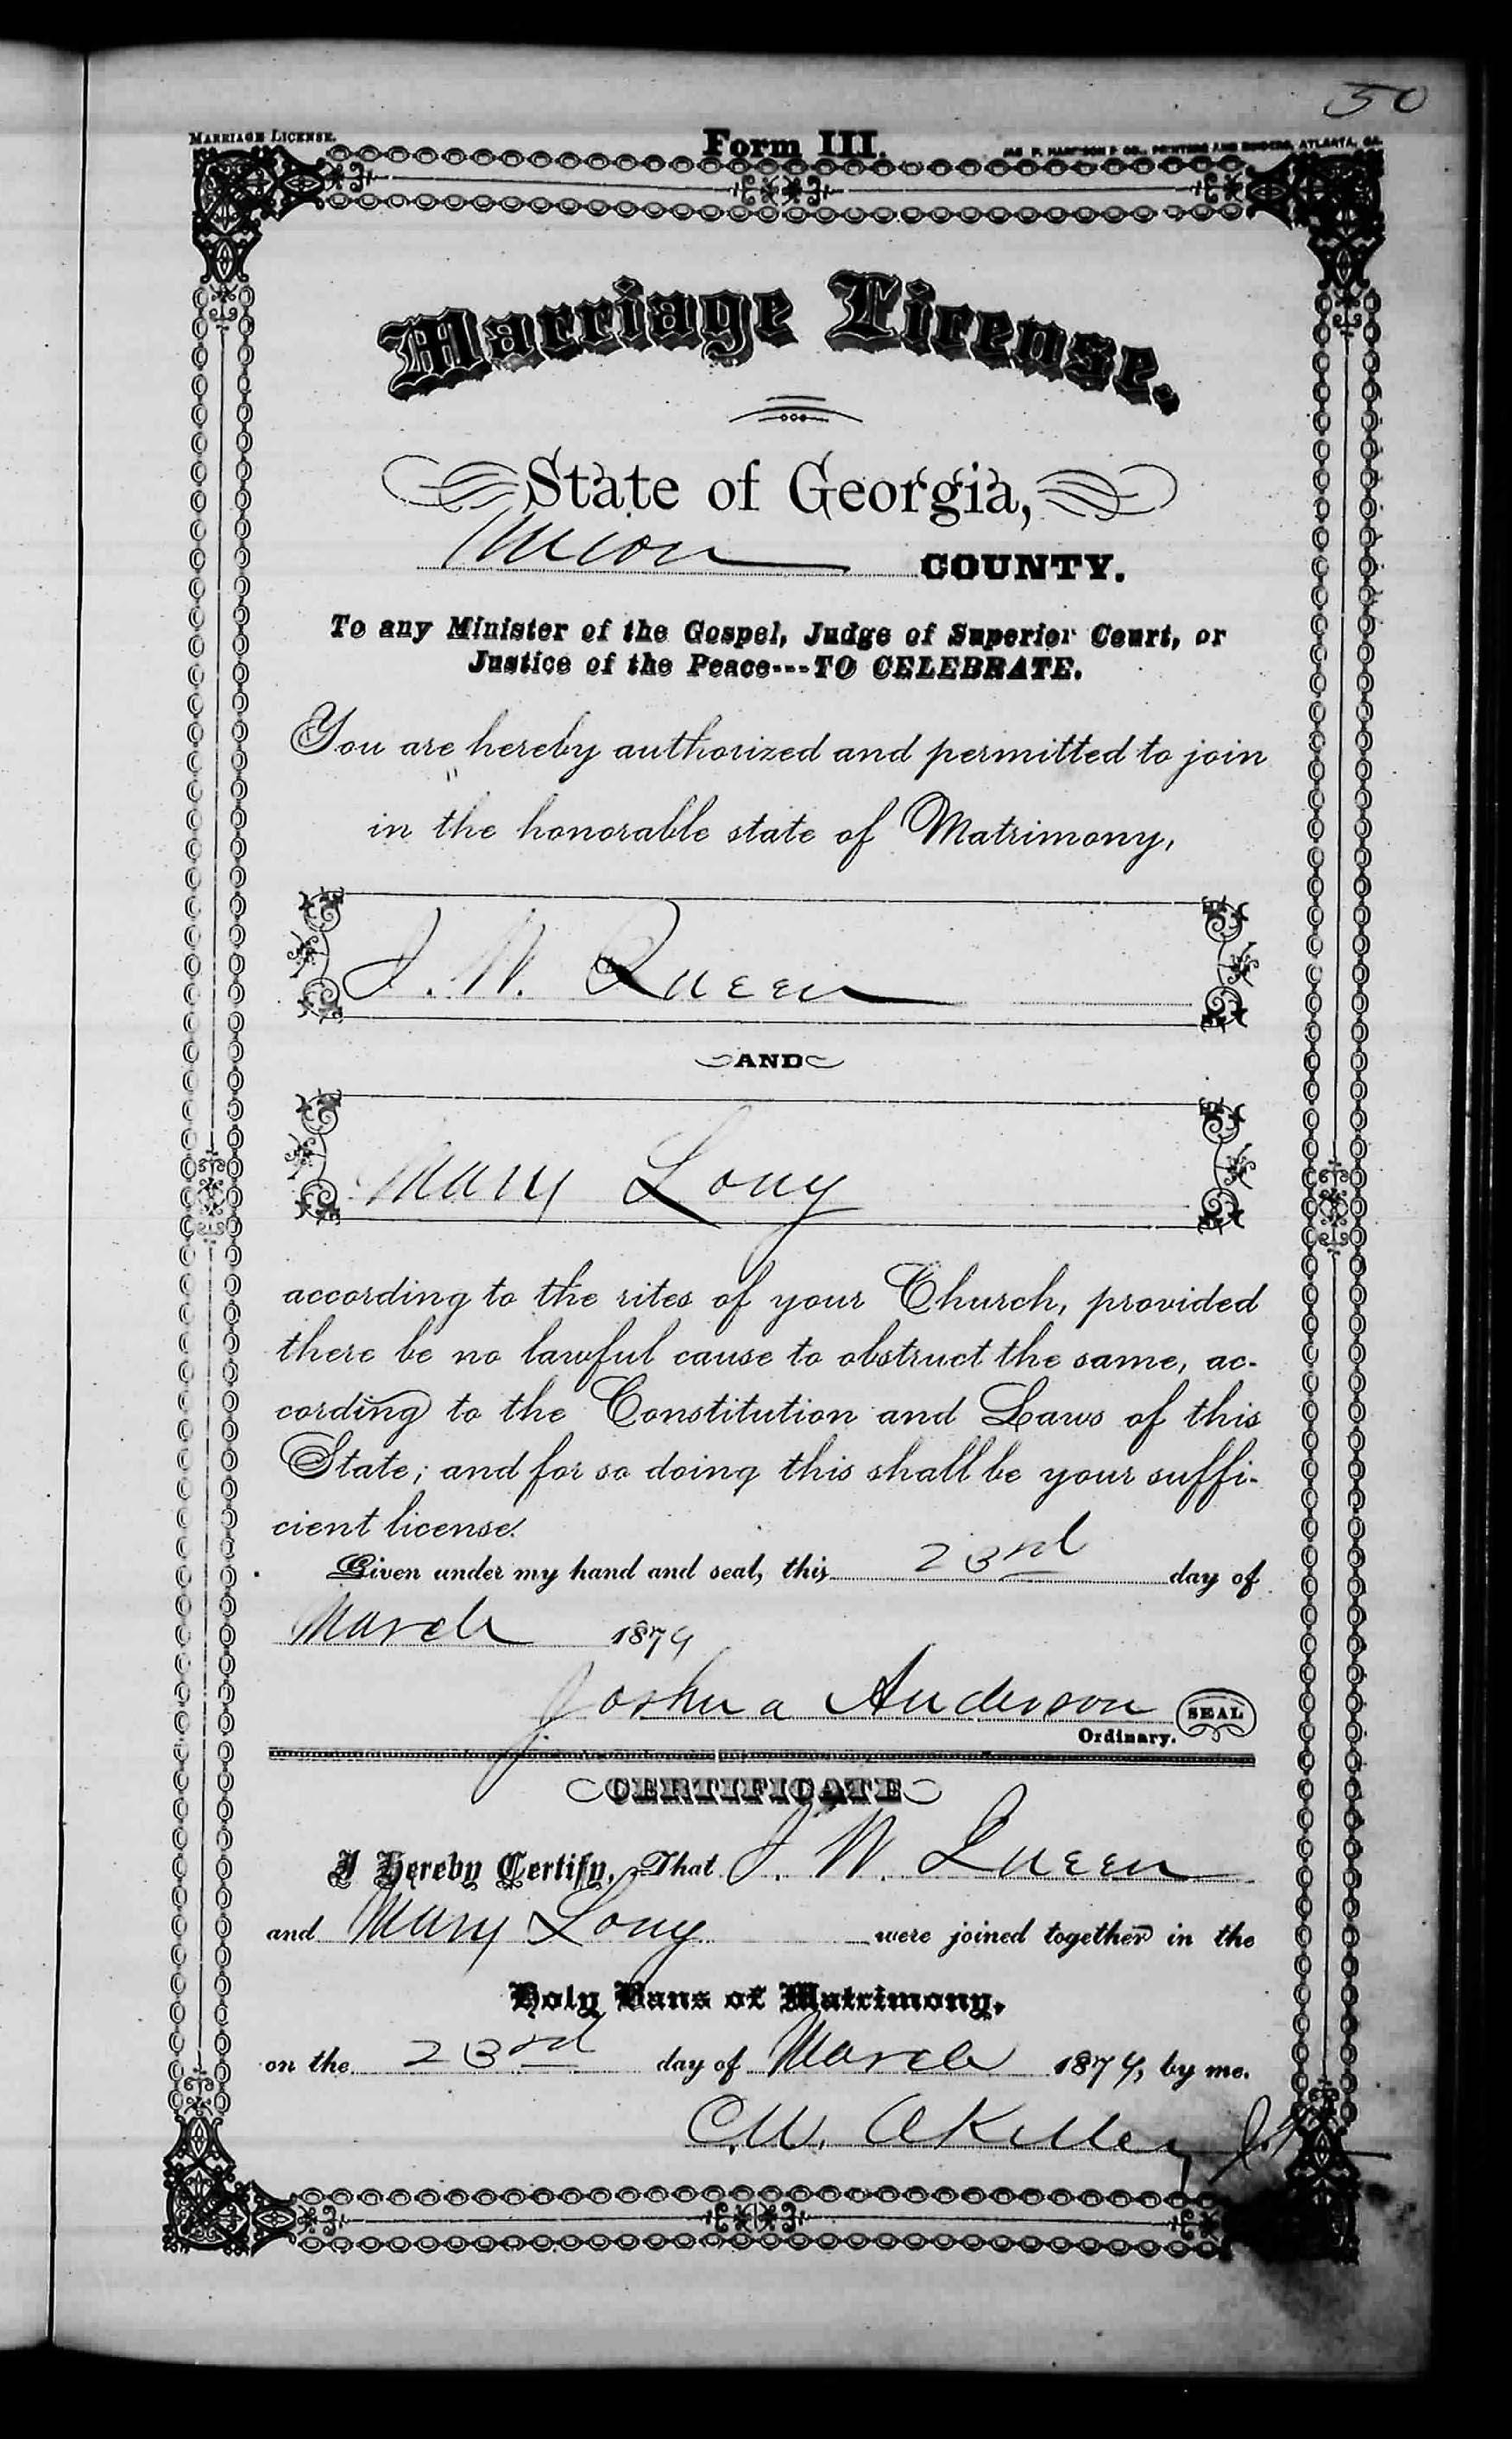 50
MARRIAGE LICENSE.
Form III.
JAS. P. HARRISON & CO., PRINTERS AND BINDERS, ATLANTA, GA.
Marriage License.
State of Georgia,
Union COUNTY.
To any Minister of the Gospel, Judge of Superior Court, or
Justice of the Peace---TO CELEBRATE.
You are hereby authorized and permitted to join
in the honorable state of Matrimony,
J. W. Queen
AND
Mary Long
according to the rites of your Church, provided
there be no lawful cause to obstruct the same, ac-
cording to the Constitution and Laws of this
State; and for so doing this shall be your suffi-
cient license.
Given under my hand and seal, this 23rd day of
March 1879
Joshua Anderson SEAL
Ordinary.
CERTIFICATE
I Hereby Certify, That J. W. Queen
and Mary Long were joined together in the
Holy Bans of Matrimony,
on the 23rd day of March 1879, by me.
C.W. Akilley